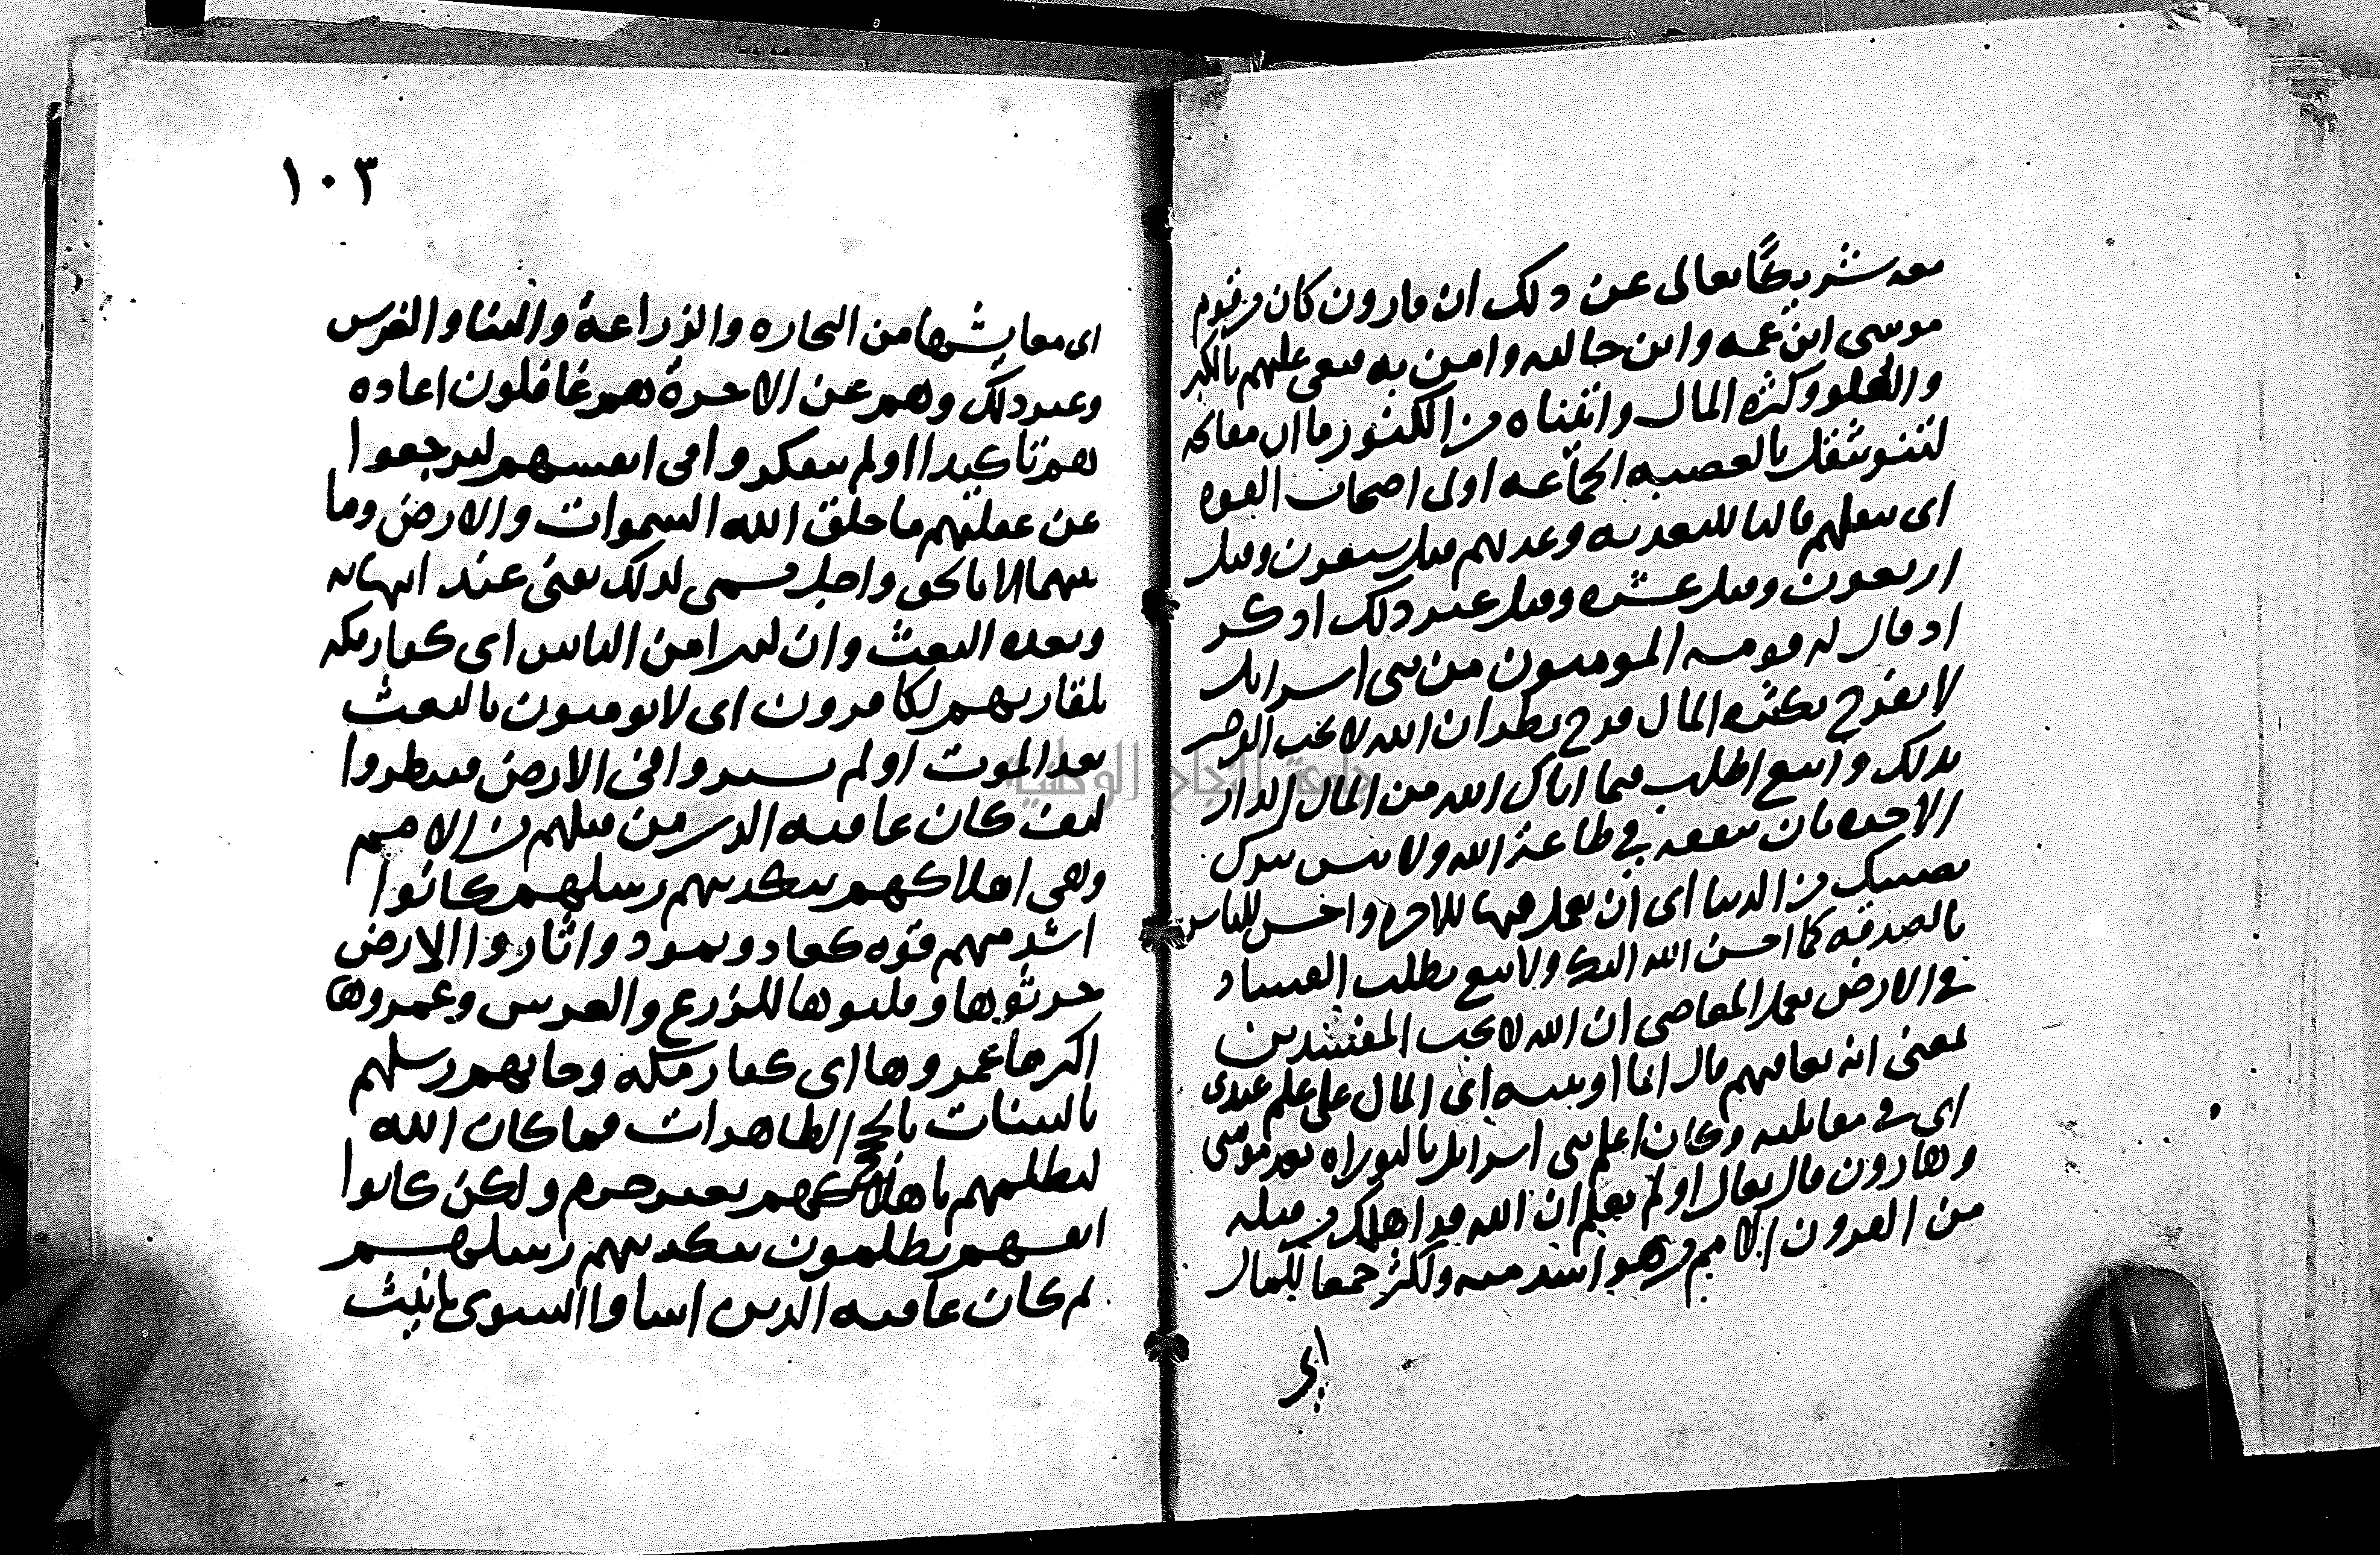 معه شريكا تعالى عن ذلك ان قارون كان من قوم
موسى ابن عمه وابن خالته وامن به فبغى عليهم بالكبر
والعلو وكثرة المال واتيناه من الكنوز ما ان مفاتحه
لتنو تثقل بالعصبة الجماعة اولى اصحاب القوة
اى تثقلهم فالبا للتعدية وعدتهم قيل سبعون وقيل
اربعون وقيل عشرة وقيل غير ذلك اذكر
اذ قال له قومه المومنون من بنى اسرايل
لا تفرح بكثرة المال فرح بطر ان الله لا يحب الفرحين
بذلك وابتغ اطلب فيما اتاك الله من المال الدار
الاخرة بان تنفقه في طاعة الله ولا تنس تترك
نصيبك من الدنيا اى ان تعمل فيها للاخرة واحسن للناس
بالصدقة كما احسن الله اليك ولا تبغ تطلب الفساد
في الارض بعمل المعاصى ان الله لا يحب المفسدين
بمعنى انه يعاقبهم قال انما اوتيته اى المال على علم عندى
اى في مقابلته وكان اعلم بنى اسرايل بالتوراة بعد موسى
وهارون قال تعالى اولم يعلم ان الله قد اهلك من قبله
من القرون الامم من هو اشد منه قوة واكثر جمعا للمال
اى
١٠٣
اى معايشها من التجارة والزراعة والبنا والغرس
وغير ذلك وهم عن الاخرة هم غافلون اعادة
هم تاكيدا اولم يتفكروا فى انفسهم ليرجعوا
عن غفلتهم ما خلق الله السموات والارض وما
بينهما الا بالحق واجل مسمى لذلك تفنى عند انتهائه
وبعده البعث وان كثيرا من الناس اى كفار مكة
بلقا ربهم لكافرون اى لا يومنون بالبعث
بعد الموت اولم يسيروا فى الارض فينظروا
كيف كان عاقبة الذين من قبلهم من الامم
وهى اهلاكهم بتكذيبهم رسلهم كانوا
اشد منهم قوة كعاد وثمود واثاروا الارض
حرثوها وقلبوها للزرع والغرس وعمروها
اكثر مما عمروها اى كفار مكة وجاتهم رسلهم
بالبينات بالحجج الظاهرات فما كان الله
ليظلمهم باهلاكهم بغير جرم ولكن كانوا
انفسهم يظلمون بتكذيبهم رسلهم
ثم كان عاقبة الذين اساوا السوى تانيث
جامعة النجاح الوطنية